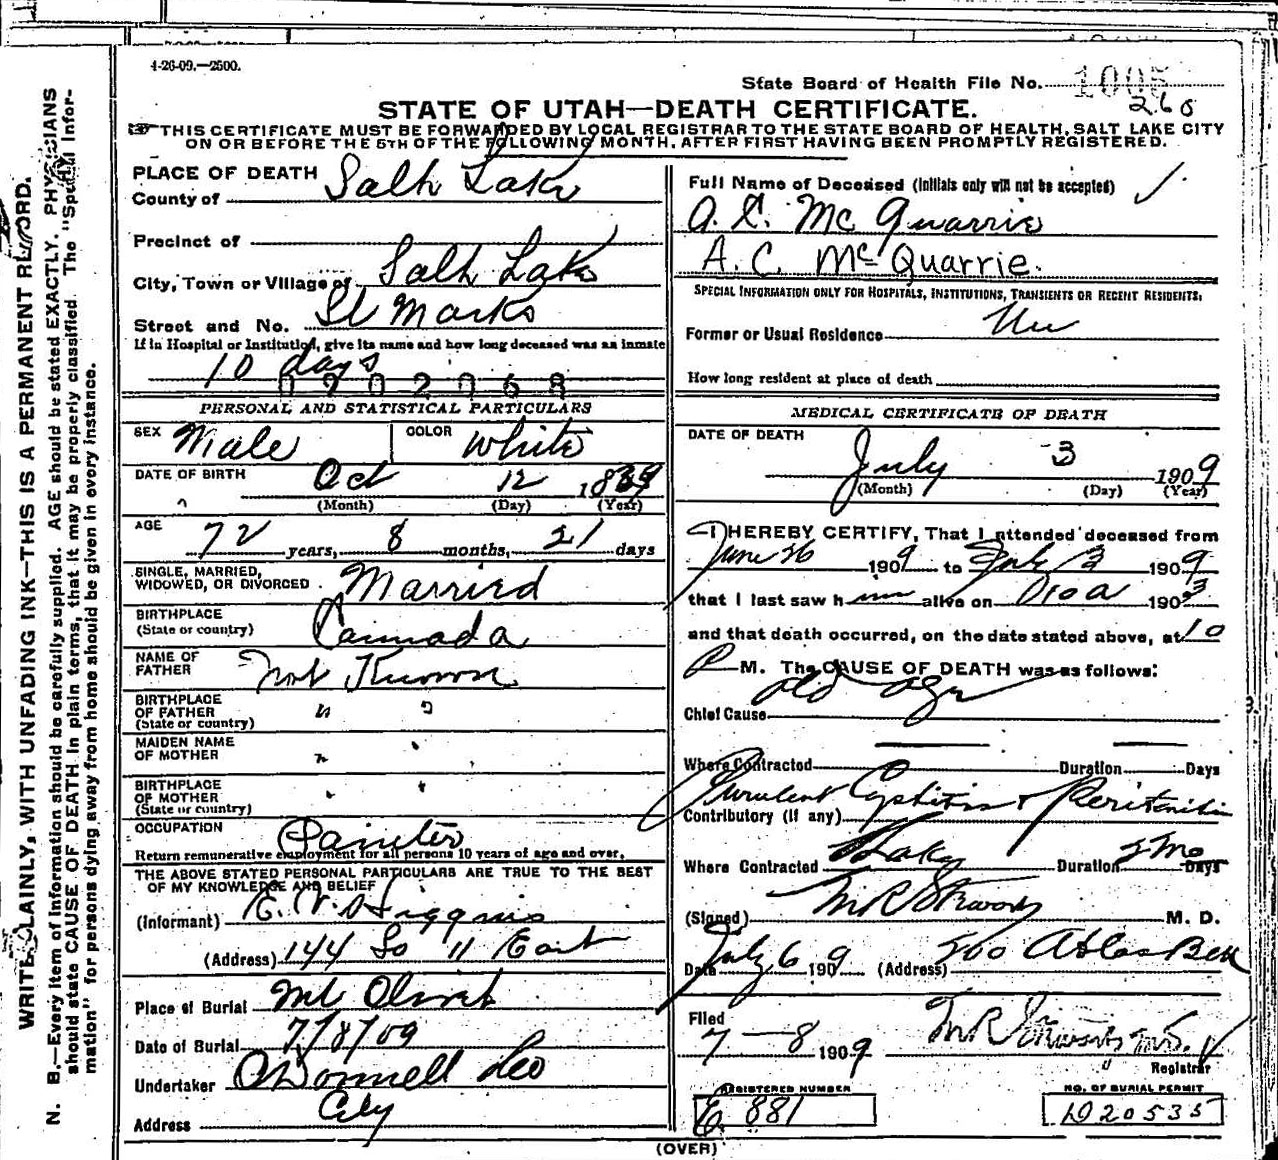 4-26-09.—2500.
State Board of Health File No. 1005
260
STATE OF UTAH—DEATH CERTIFICATE.
THIS CERTIFICATE MUST BE FORWARDED BY LOCAL REGISTRAR TO THE STATE BOARD OF HEALTH, SALT LAKE CITY
ON OR BEFORE THE 5TH OF THE FOLLOWING MONTH, AFTER FIRST HAVING BEEN PROMPTLY REGISTERED.
WRITE PLAINLY, WITH UNFADING INK—THIS IS A PERMANENT RECORD.
N. B.—Every item of information should be carefully supplied. AGE should be stated EXACTLY. PHYSICIANS
should state CAUSE OF DEATH in plain terms, that it may be properly classified. The "Special Infor-
mation" for persons dying away from home should be given in every instance.
PLACE OF DEATH
County of Salt Lake
Precinct of
City, Town or Village of Salt Lake
Street and No. St Marks
If in Hospital or Institution, give its name and how long deceased was an inmate
10 days
0902068
PERSONAL AND STATISTICAL PARTICULARS
SEX Male COLOR White
DATE OF BIRTH Oct 12
(Month) (Day) (Year)
AGE 72 years, 8 months, 21 days
SINGLE, MARRIED,
WIDOWED, OR DIVORCED. Married
BIRTHPLACE
(State or country) Cannada
NAME OF
FATHER Not Known
BIRTHPLACE
OF FATHER
(State or country) " "
MAIDEN NAME
OF MOTHER " "
BIRTHPLACE
OF MOTHER
(State or country) " "
OCCUPATION Painter
Return remunerative employment for all persons 10 years of age and over.
THE ABOVE STATED PARTICULARS ARE TRUE TO THE BEST
OF MY KNOWLEDGE AND BELIEF
(Informant) E. V. Higgins
(Address) 144 So 11 East
Place of Burial Mt Olivet
Date of Burial 7/8/09
Undertaker O'Donnell
Address City
Full Name of Deceased (Initials only will not be accepted)
A. C. McQuarrie
A. C. McQuarrie.
SPECIAL INFORMATION ONLY FOR HOSPITALS, INSTITUTIONS, TRANSIENTS OR RECENT RESIDENTS:
Former or Usual Residence
How long resident at place of death
MEDICAL CERTIFICATE OF DEATH
DATE OF DEATH
July 3 1909
(Month) (Day) (Year)
I HEREBY CERTIFY, That I attended deceased from
June 26 1909 to July 3 1909
that I last saw him alive on 190
and that death occurred, on the date stated above, at 10
P M. The CAUSE OF DEATH was as follows:
Chief Cause old age
Where Contracted Duration Days
Purulent Cystitis & Peritonitis
Contributory (if any)
Where Contracted Duration Days
(Signed) M. D.
Date July 6 1909 (Address) 500 Atlas
Filed
7—8 1909
Registrar
REGISTERED NUMBER
E. 881
NO. OF BURIAL PERMIT
D20535
(OVER)